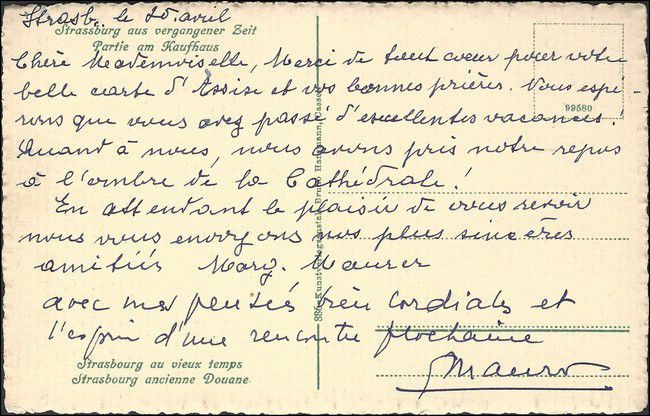 Strasb. le 25. avril
Strassburg aus vergangener Zeit
Partie am Kaufhaus
Chère Mademoiselle, Merci de tout cœur pour votre
belle carte d'Assise et vos bonnes prières. Nous espé-
rons que vous avez passé d'excellentes vacances!
Quand à nous, nous avons pris notre repos
à l'ombre de la Cathédrale!
En attendant le plaisir de vous revoir
nous vous envoyons nos plus sincères
amitiés Marg. Maurer
avec mes pensées bien cordiales et
l'espoir d'une rencontre prochaine
Maurer
Strasbourg au vieux temps
Strasbourg ancienne Douane
99580
Kunstverlagsanstalt Bruno Hansmann, Cassel